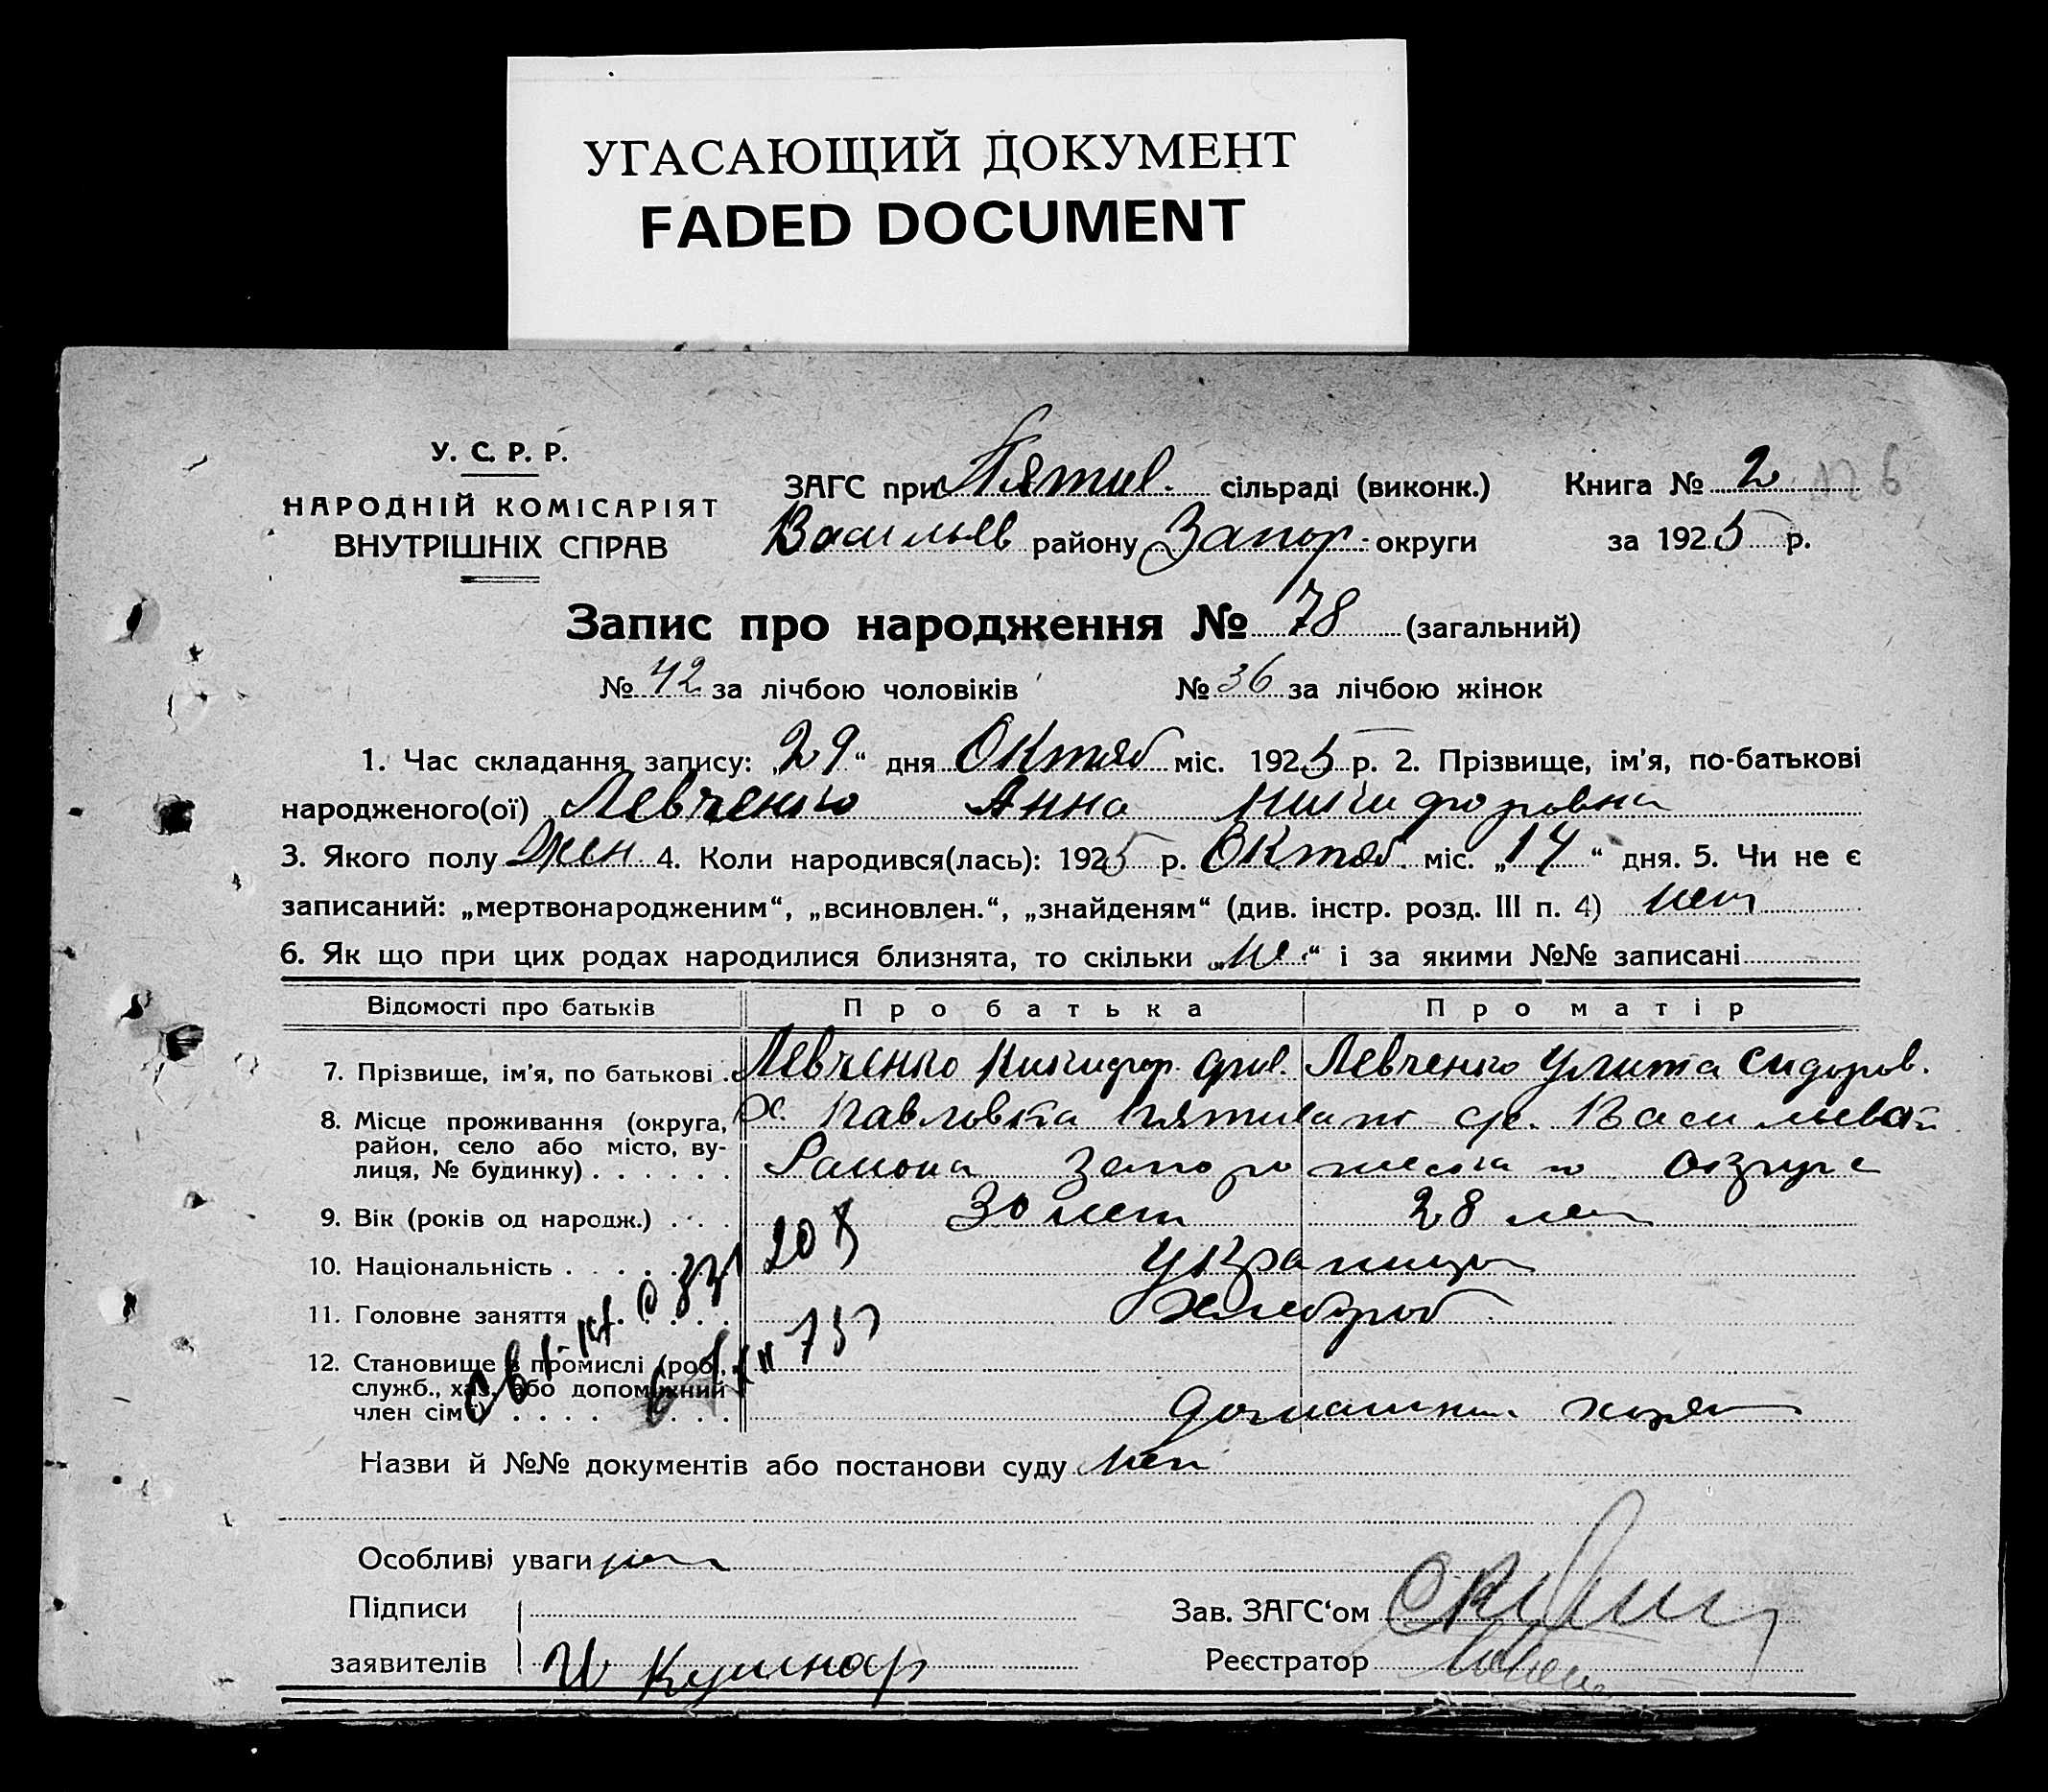 УГАСАЮЩИЙ ДОКУМЕНТ
FADED DOCUMENT
У. С. Р. Р.
НАРОДНІЙ КОМІСАРІЯТ
ВНУТРІШНІХ СПРАВ
ЗАГС при Пятих. сільраді (виконк.)
Васильев району Запор. округи
Книга № 2
за 1925 р.
Запис про народження № 78 (загальний)
№ 42 за лічбою чоловіків № 36 за лічбою жінок
1. Час складання запису: „29“ дня Октяб міс. 1925 р. 2. Прізвище, ім'я, по-батькові
народженого(ої) Левченко Анна Никифоровна
3. Якого полу Жен 4. Коли народився(лась): 1925 р. Октяб. міс. „14“ дня. 5. Чи не є
записаний: „мертвонародженим“, „всиновлен.“, „знайденям“ (див. інстр. розд. III п. 4) нет
6. Як що при цих родах народилися близнята, то скільки „не“ і за якими №№ записані
Відомості про батьків Про батька Про матір
7. Прізвище, ім'я, по батькові . Левченко Никифор. Фил. Левченко Улита Сидоров.
8. Місце проживання (округа, х. Павловка с/с. Васильевск
район, село або місто, ву- Района Запорожского округа
лиця, № будинку) . . . . . .
9. Вік (років од народж.) . . . 30 лет 28 лет
10. Національність . . . . . . Украинцы
11. Головне заняття . . . . . Хлебороб.
12. Становище в промислі (роб.,
служб., хаз. або допоміжний
член сім'ї) . . . . . . . . домашнее
Назви й №№ документів або постанови суду нет
Особливі уваги нет
Підписи
заявителів И Кушнар
Зав. ЗАГС‘ом
Реєстратор